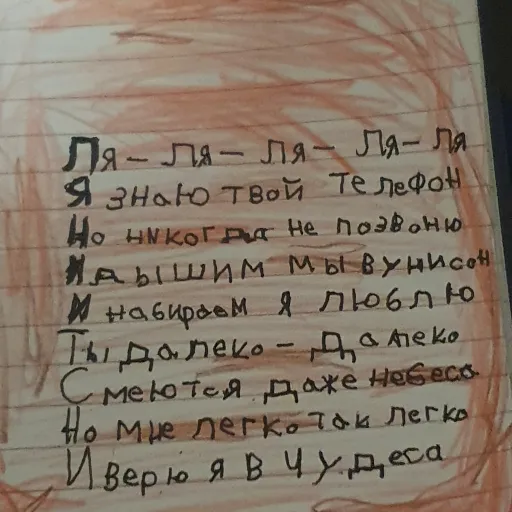 Ля – Ля – Ля – Ля – Ля
Я знаю твой телефон
Но никогда не позвоню
И дышим мы в унисон
И набираем я люблю
Ты далеко – Далеко
Смеются даже небеса
Но мне легко так легко
И верю я в чудеса